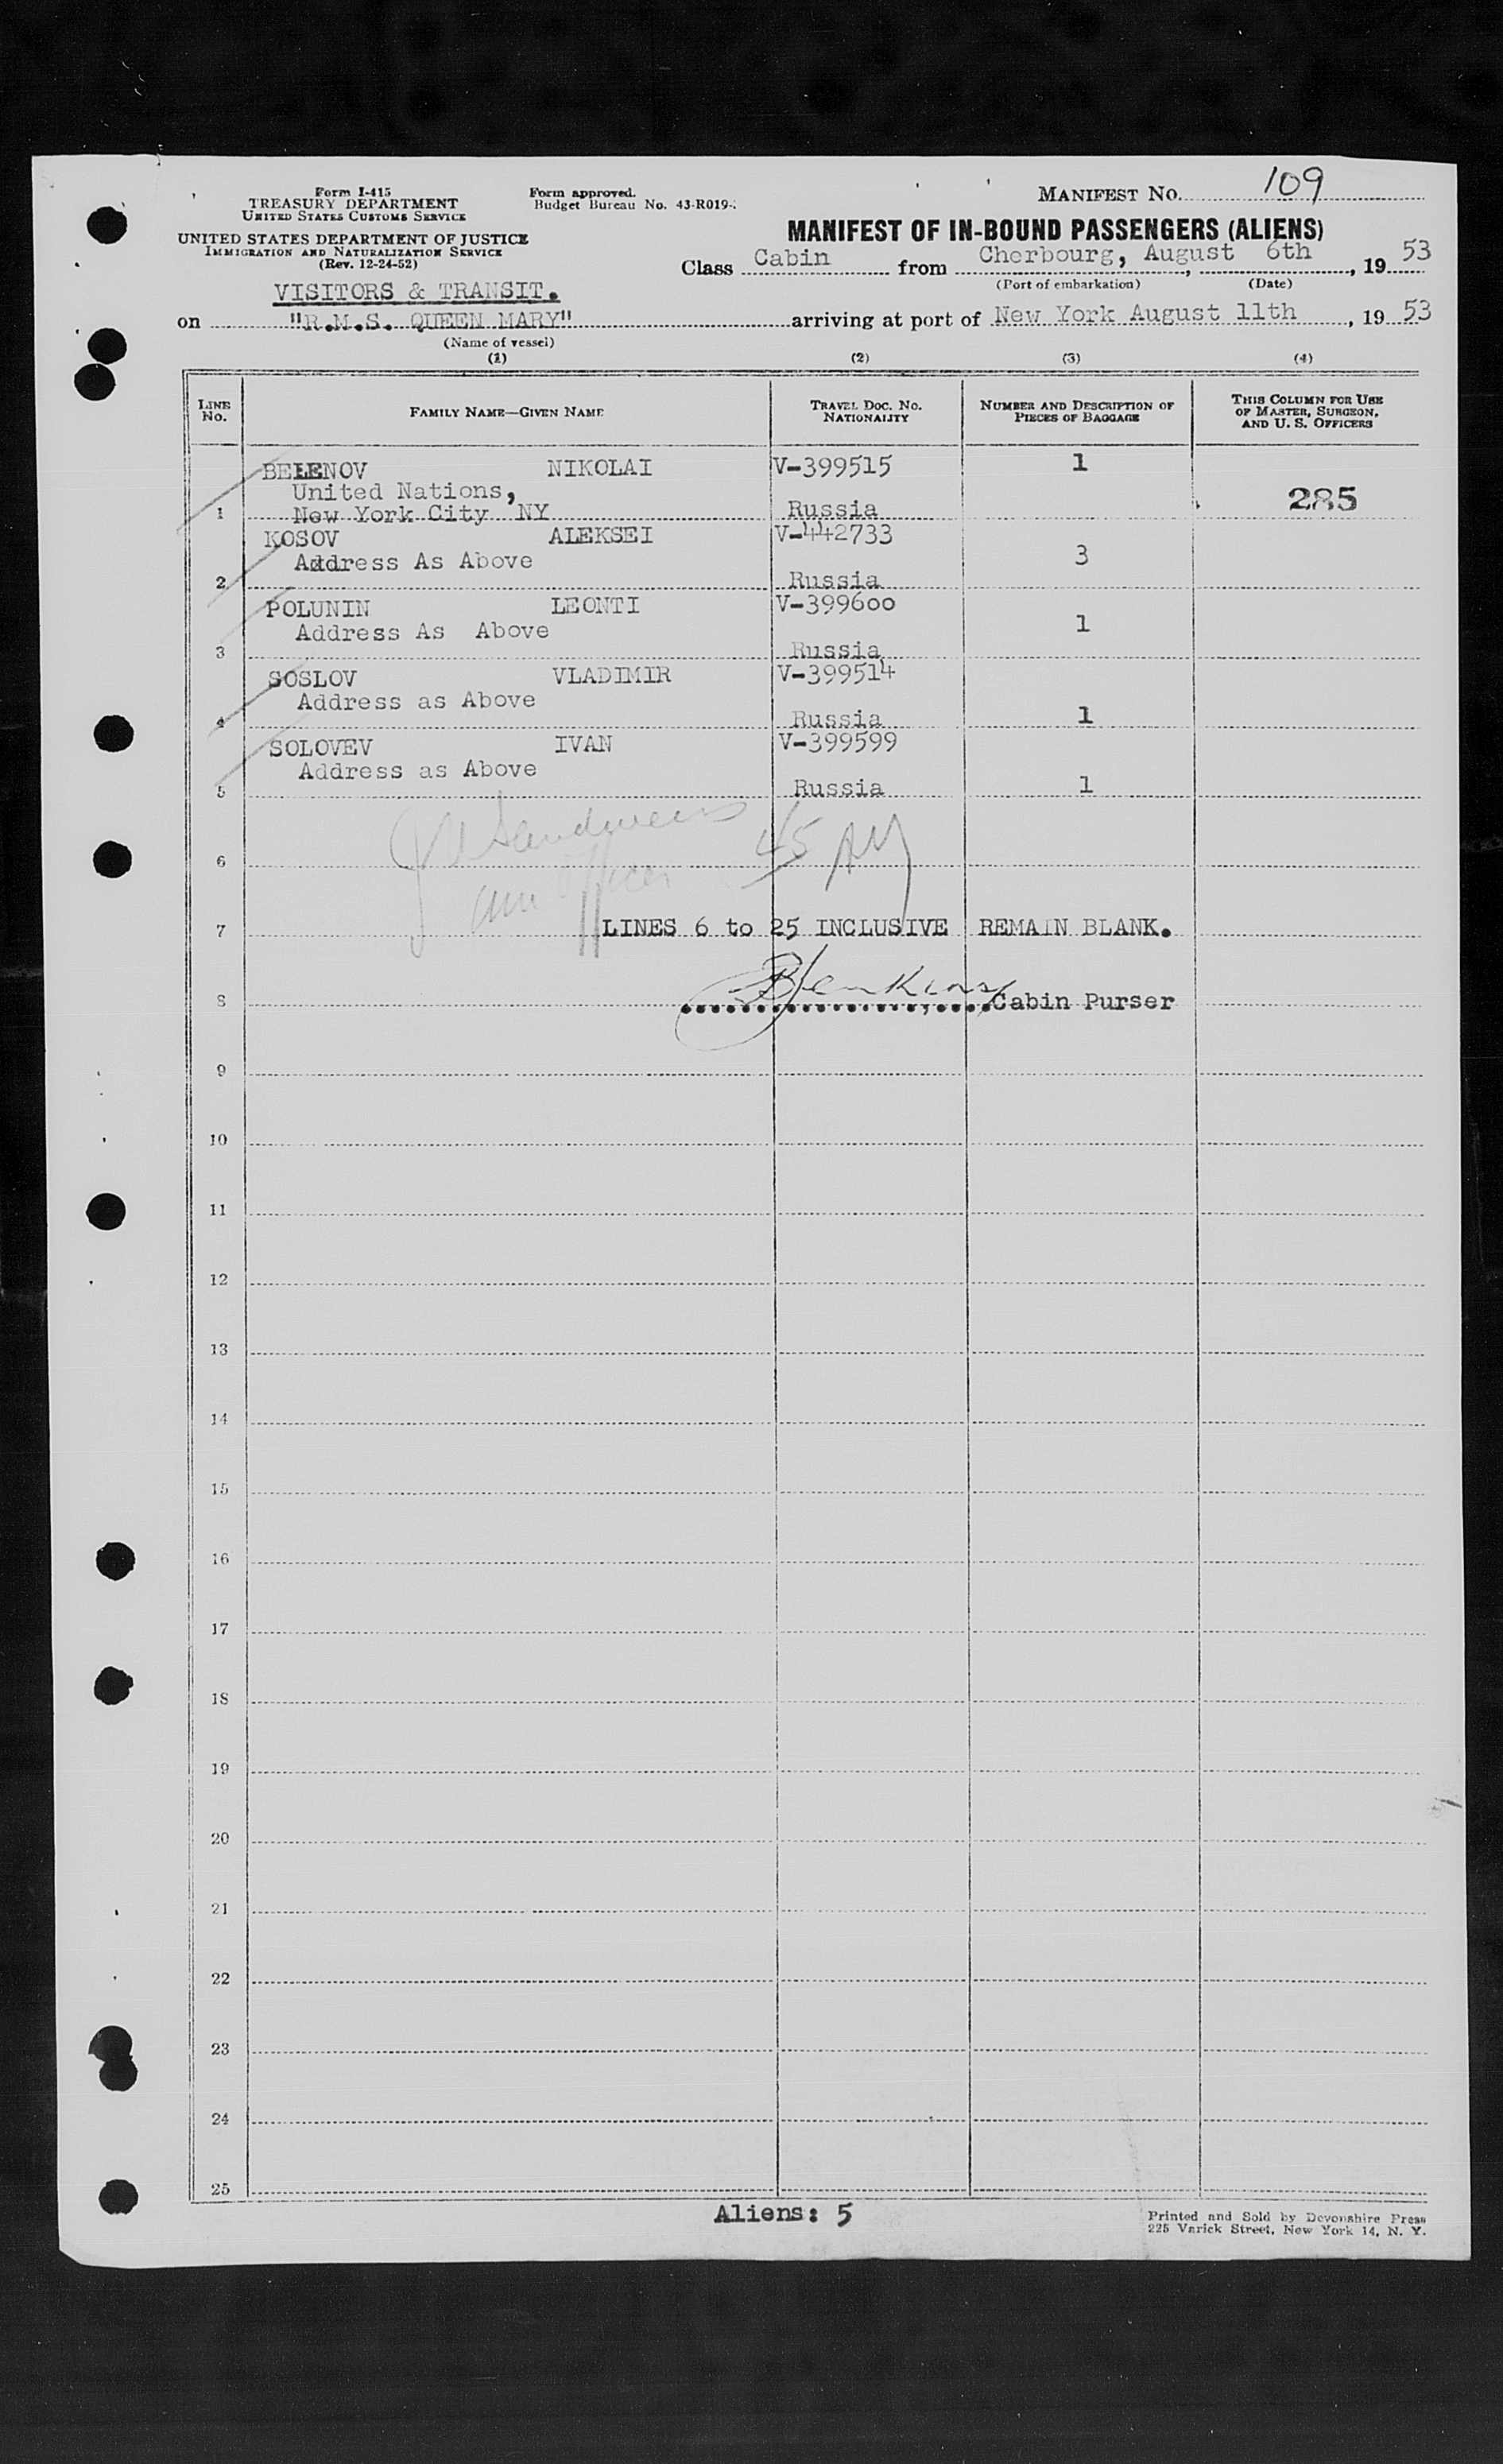 Form I-415
TREASURY DEPARTMENT
UNITED STATES CUSTOMS SERVICE
UNITED STATES DEPARTMENT OF JUSTICE
IMMIGRATION AND NATURALIZATION SERVICE
(Rev. 12-24-52)
Form approved.
Budget Bureau No. 43-R019-
MANIFEST NO. 109
MANIFEST OF IN-BOUND PASSENGERS (ALIENS)
Class Cabin from Cherbourg, August 6th, 19 53
(Port of embarkation) (Date)
VISITORS & TRANSIT.
on "R.M.S. QUEEN MARY" arriving at port of New York August 11th, 19 53
(Name of vessel)
(1) (2) (3) (4)
LINE NO. FAMILY NAME—GIVEN NAME TRAVEL DOC. NO. NATIONALITY NUMBER AND DESCRIPTION OF PIECES OF BAGGAGE THIS COLUMN FOR USE OF MASTER, SURGEON, AND U. S. OFFICERS
BELENOV NIKOLAI V-399515 1
United Nations, 285
1 New York City NY Russia
KOSOV ALEKSEI V-442733
Address As Above 3
2 Russia
POLUNIN LEONTI V-399600
Address As Above 1
3 Russia
SOSLOV VLADIMIR V-399514
Address as Above
4 Russia 1
SOLOVEV IVAN V-399599
Address as Above
5 Russia 1
45
6
7 LINES 6 to 25 INCLUSIVE REMAIN BLANK.
8 BJenkins Cabin Purser
9
10
11
12
13
14
15
16
17
18
19
20
21
22
23
24
25
Aliens: 5
Printed and Sold by Devonshire Press
225 Varick Street, New York 14, N. Y.